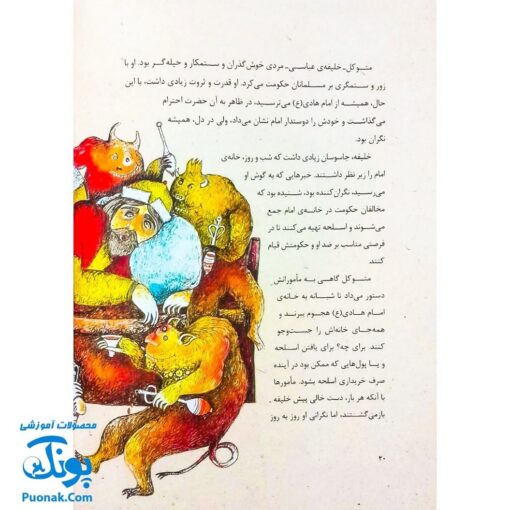 متوکل ـ خلیفه‌ی عباسی ـ مردی خوش‌گذران و ستمکار و حیله‌گر بود. او با
زور و ستمگری بر مسلمانان حکومت می‌کرد. او قدرت و ثروت زیادی داشت، با این
حال، همیشه از امام هادی(ع) می‌ترسید، در ظاهر به آن حضرت احترام
می‌گذاشت و خودش را دوستدار امام نشان می‌داد، ولی در دل، همیشه
نگران بود.
خلیفه، جاسوسان زیادی داشت که شب و روز، خانه‌ی
امام را زیر نظر داشتند. خبرهایی که به گوش او
می‌رسید، نگران‌کننده بود، شنیده بود که
مخالفان حکومت در خانه‌ی امام جمع
می‌شوند و اسلحه تهیه می‌کنند تا در
فرصتی مناسب بر ضد او و حکومتش قیام
کنند
متوکل گاهی به مأمورانش
دستور می‌داد تا شبانه به خانه‌ی
امام هادی(ع) هجوم ببرند و
همه‌جای خانه‌اش را جست‌وجو
کنند. برای چه؟ برای یافتن اسلحه
و یا پول‌هایی که ممکن بود در آینده
صرف خریداری اسلحه بشود. مأمورها
با آنکه هر بار، دست خالی پیش خلیفه
بازمی‌گشتند، اما نگرانی او روز به روز
۲۰
محصولات آموزشی
پونک
Puonak.Com